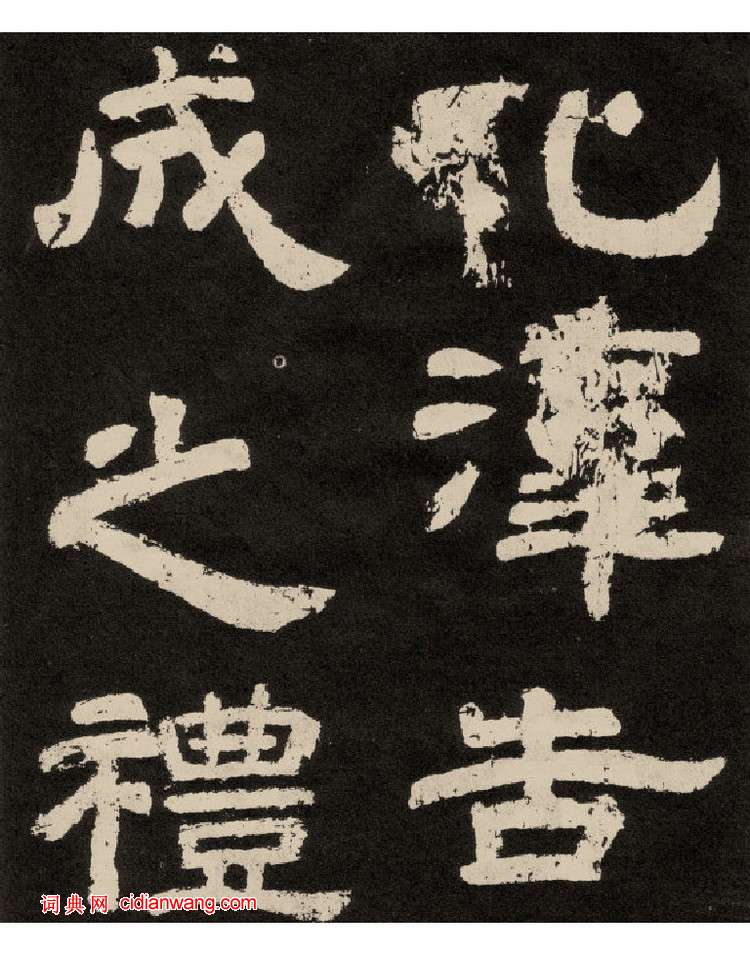 化澤告
成之禮
词典网 cidianwang.com